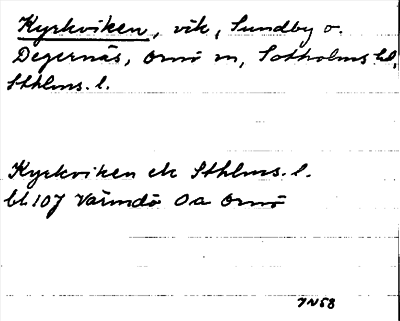 Kyrkviken, vik, Sundby o.
Degernäs, Ornö sn, Sotholms hd,
Sthlms. l.
Kyrkviken ek Sthlms. l.
bl 107 Värmdö Oa Ornö
JN58